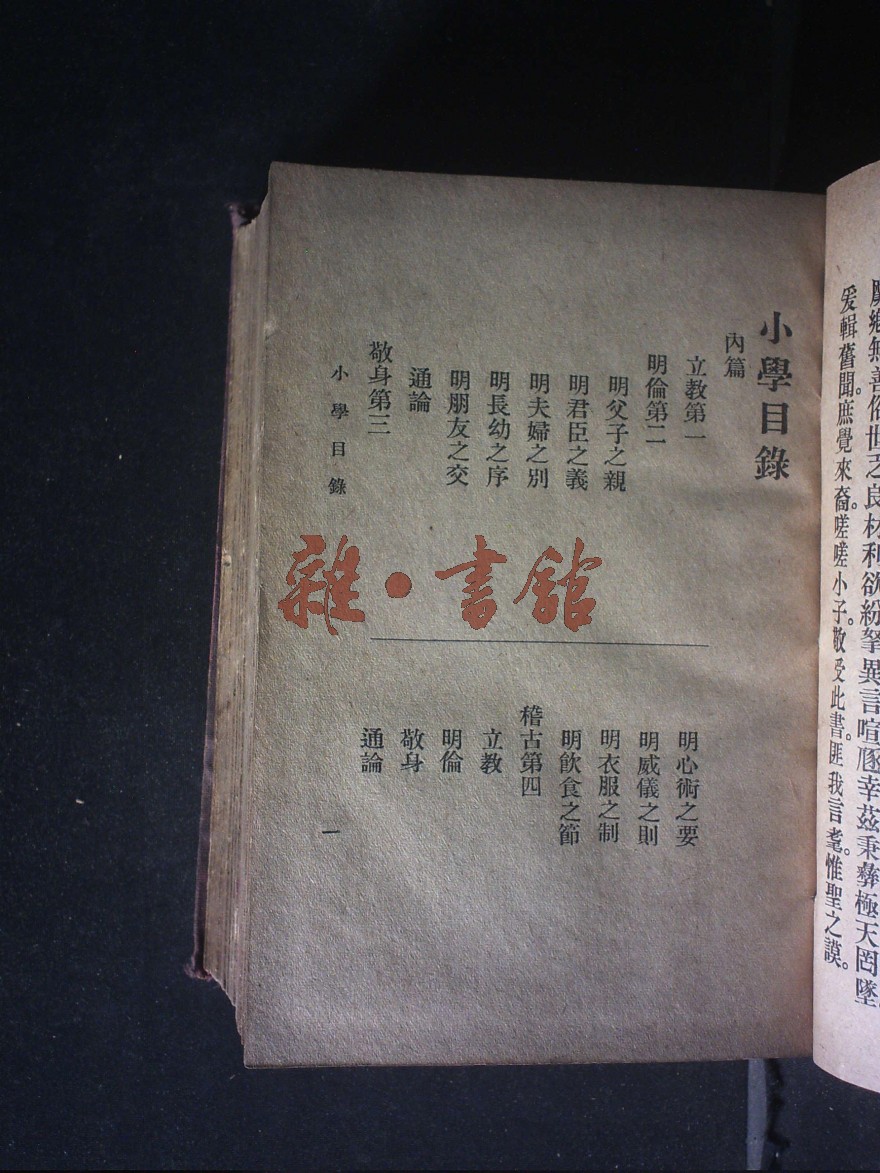 厲鄉無善俗世乏良材利欲紛拏異言喧豗幸茲秉彝極天罔墜。
爰輯舊聞。庶覺來裔。嗟嗟小子。敬受此書。匪我言耄。惟聖之謨。
小學目錄
內篇
立教第一
明倫第二
明父子之親
明君臣之義
明夫婦之別
明長幼之序
明朋友之交
通論
敬身第三
明心術之要
明威儀之則
明衣服之制
明飲食之節
稽古第四
立教
明倫
敬身
通論
小學目錄
一
雜·書館